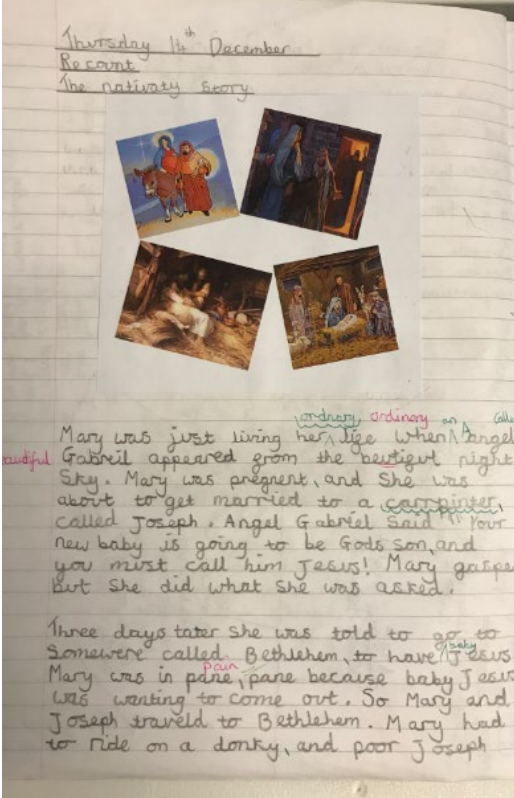 Thursday 14th December
Recount
The nativaty story
ordnary ordinary an
Mary was just living her life when A angel
Gabreil appeared from the beutiful night
Sky. Mary was pregnent, and She was
about to get married to a carrpinter,
called Joseph. Angel Gabriel Said "Your
new baby is going to be Gods son, and
you must call him Jesus! Mary
but She did what she was asked.
Three days later she was told to go to
baby
Somewere called Bethlehem, to have Jesus
pain
Mary was in pane, pane because baby Jesus
was wanting to come out. So Mary and
Joseph traveld to Bethlehem. Mary had
to ride on a donky, and poor Joseph